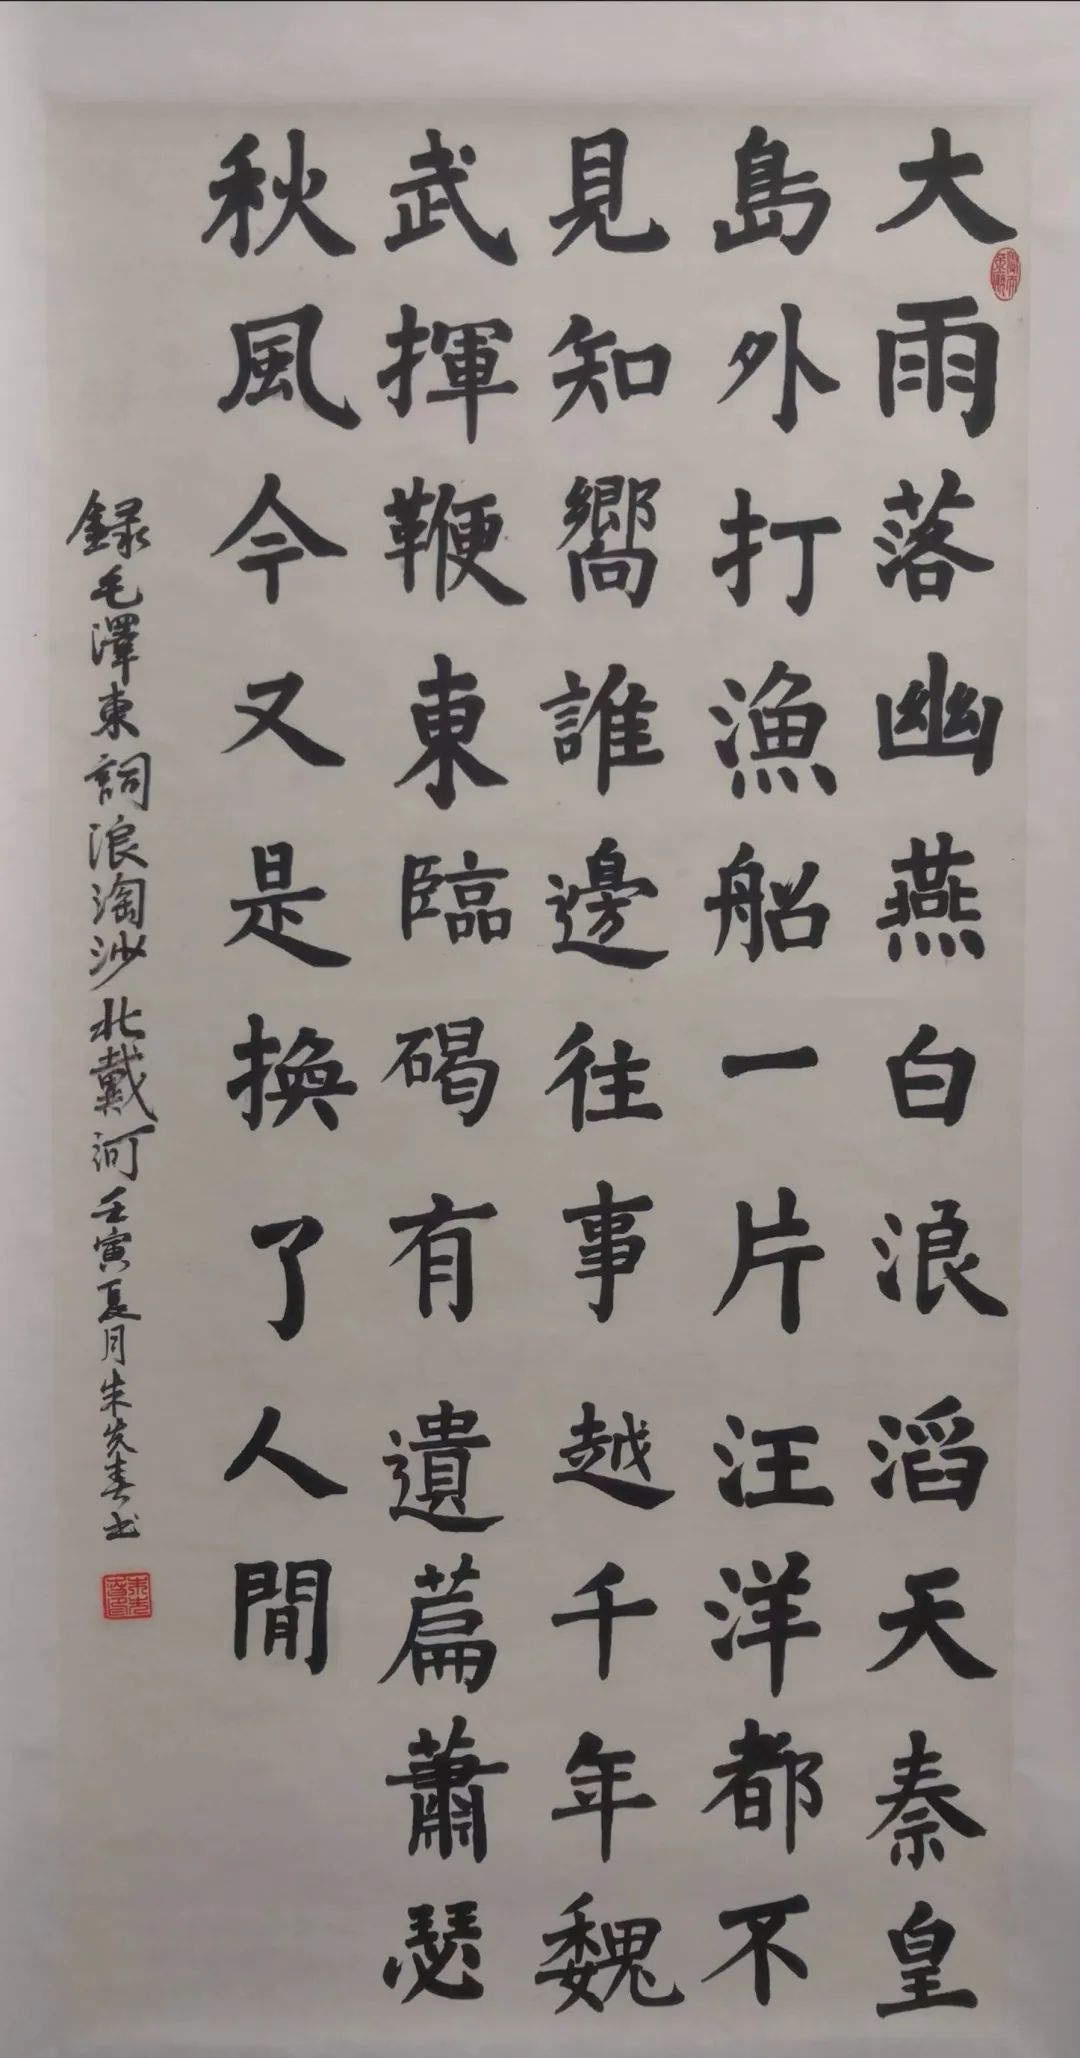 大雨落幽燕白浪滔天秦皇
島外打漁船一片汪洋都不
見知嚮誰邊往事越千年魏
武揮鞭東臨碣有遺篇蕭瑟
秋風今又是換了人間
録毛澤東詞浪淘沙北戴河壬寅夏月朱先春书